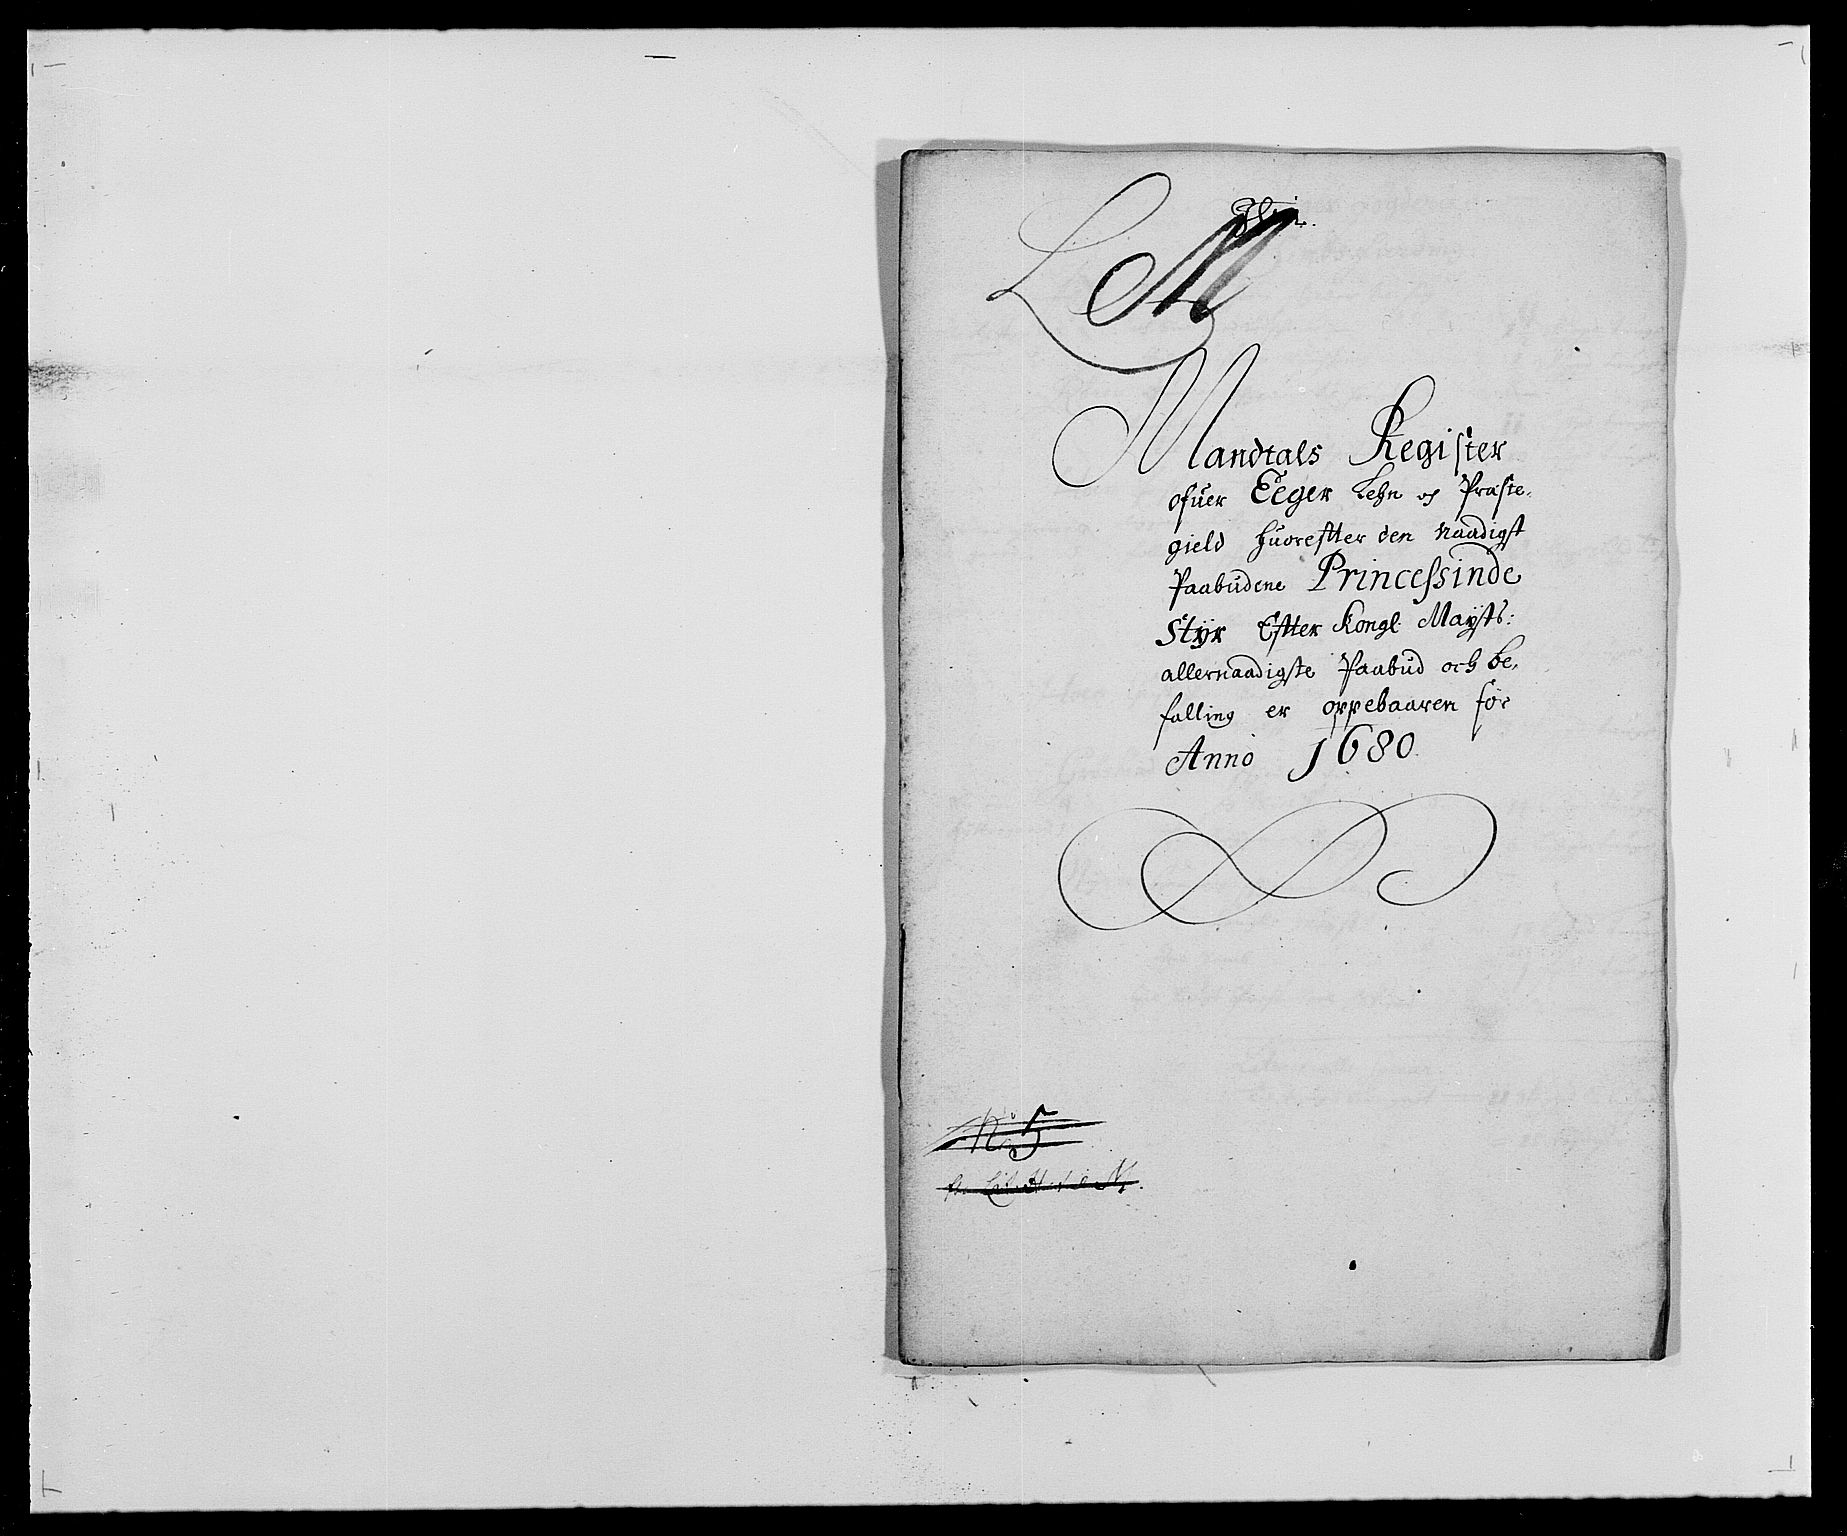 L M
Mandtals Register
ofuer Eeger Lehn och Præste-
gield huorefter den Naadigst
Paabudene Princessinde
Styr Efter Kongl: Maysts:
allernaadigste Paabud och be-
falling er oppebaaren for
Anno 1680.
No 5